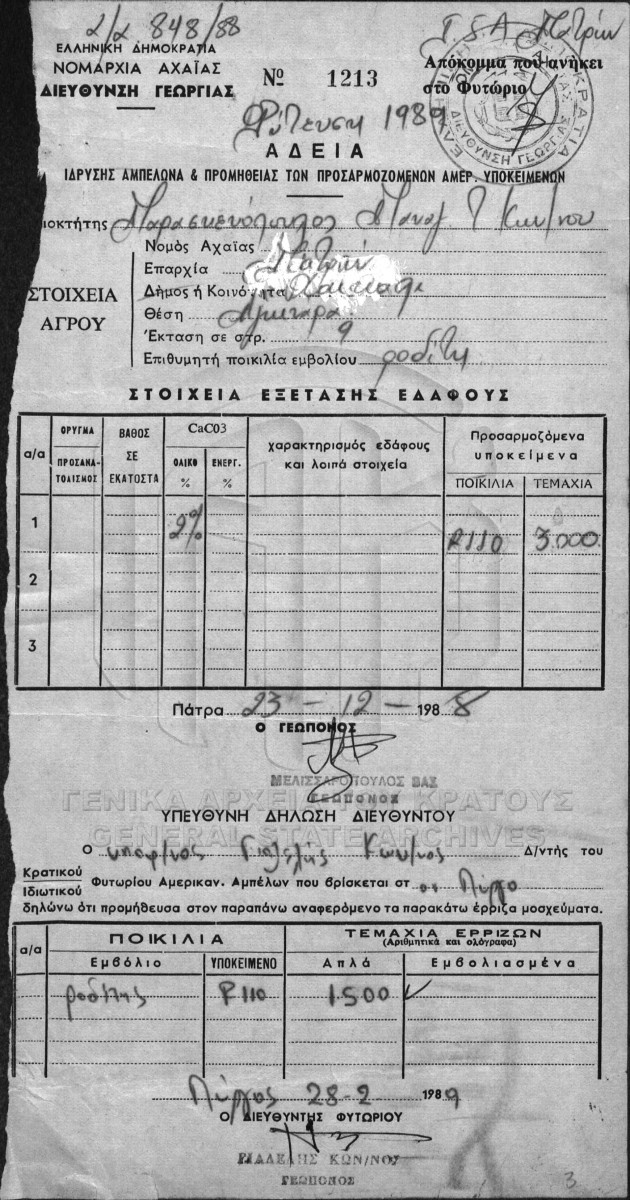 2/2 848/88
Τ.Σ.Α. Πατρών
ΕΛΛΗΝΙΚΗ ΔΗΜΟΚΡΑΤΙΑ
ΝΟΜΑΡΧΙΑ ΑΧΑΪΑΣ
ΔΙΕΥΘΥΝΣΗ ΓΕΩΡΓΙΑΣ
№ 1213
Απόκομμα που ανήκει
στο Φυτώριο
ΔΙΕΥΘΥΝΣΗ ΓΕΩΡΓΙΑΣ
Φύτευση 1989
ΑΔΕΙΑ
ΙΔΡΥΣΗΣ ΑΜΠΕΛΩΝΑ & ΠΡΟΜΗΘΕΙΑΣ ΤΩΝ ΠΡΟΣΑΡΜΟΖΟΜΕΝΩΝ ΑΜΕΡ. ΥΠΟΚΕΙΜΕΝΩΝ
ιοκτήτης Παρασκευόπουλος Παναγ. Κων/νου
ΣΤΟΙΧΕΙΑ
ΑΓΡΟΥ
Νομός Αχαΐας
Επαρχία Πατρών
Δήμος ή Κοινότητα
Θέση
Έκταση σε στρ. 9
Επιθυμητή ποικιλία εμβολίου ροδίτη
ΣΤΟΙΧΕΙΑ ΕΞΕΤΑΣΗΣ ΕΔΑΦΟΥΣ
α/α ΟΡΥΓΜΑ ΠΡΟΣΑΝΑΤΟΛΙΣΜΟΣ ΒΑΘΟΣ ΣΕ ΕΚΑΤΟΣΤΑ CaCO3 ΟΛΙΚΟ % ΕΝΕΡΓ. % χαρακτηρισμός εδάφους και λοιπά στοιχεία Προσαρμοζόμενα υποκείμενα ΠΟΙΚΙΛΙΑ ΤΕΜΑΧΙΑ
1 2% R110 3.000
2
3
Πάτρα 23-12-1988
Ο ΓΕΩΠΟΝΟΣ
ΜΕΛΙΣΣΑΡΟΠΟΥΛΟΣ ΒΑΣ
ΓΕΩΠΟΝΟΣ
ΓΕΝΙΚΑ ΑΡΧΕΙΑ ΤΟΥ ΚΡΑΤΟΥΣ
GENERAL STATE ARCHIVES
ΥΠΕΥΘΥΝΗ ΔΗΛΩΣΗ ΔΙΕΥΘΥΝΤΟΥ
Ο υπογ/νος Γιαδελής Κων/νος Δ/ντής του
Κρατικού
Ιδιωτικού Φυτωρίου Αμερικαν. Αμπέλων που βρίσκεται στ ον Πύργο
δηλώνω ότι προμήθευσα στον παραπάνω αναφερόμενο τα παρακάτω έρριζα μοσχεύματα.
α/α ΠΟΙΚΙΛΙΑ Εμβόλιο ΥΠΟΚΕΙΜΕΝΟ ΤΕΜΑΧΙΑ ΕΡΡΙΖΩΝ (Αριθμητικά και ολόγραφα) Απλά Εμβολιασμένα
ροδίτης R110 1500 ✓
Πύργος 28-2 1989
Ο ΔΙΕΥΘΥΝΤΗΣ ΦΥΤΩΡΙΟΥ
ΓΙΑΔΕΛΗΣ ΚΩΝ/ΝΟΣ
ΓΕΩΠΟΝΟΣ
3